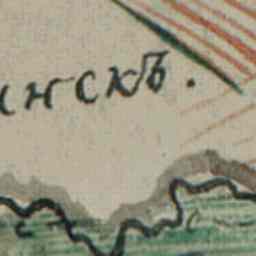 инскъ.